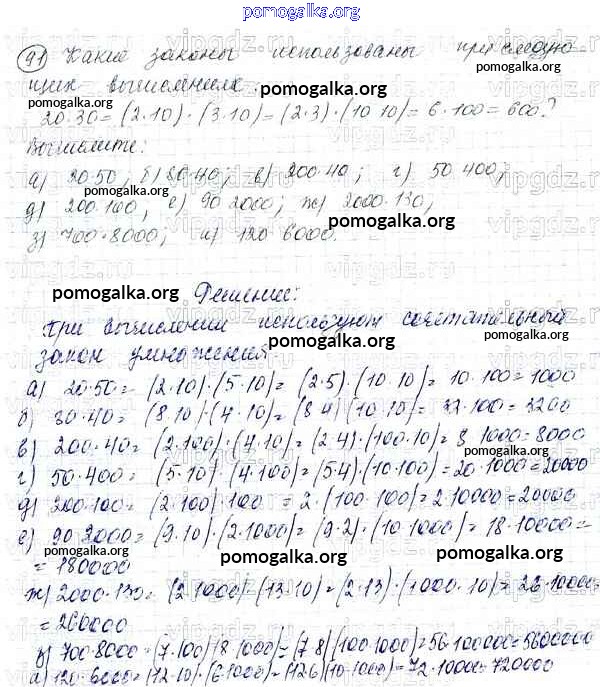 pomogalka.org
91 Какие законы использованы при следую
щих вычислениях
pomogalka.org
20·30=(2·10)·(3·10)=(2·3)·(10·10)=6·100=600?
Вычислите:
а) 20·50; б) 80·40; в) 200·40; г) 50·400;
pomogalka.org
д) 200·100; е) 90·2000; ж) 2000·130;
pomogalka.org
з) 700·8000; и) 120·6000.
pomogalka.org Решение:
При вычислении используют сочетательный
закон умножения pomogalka.org
а) 20·50= (2·10)·(5·10)= (2·5)·(10·10)= 10·100=1000
б) 80·40= (8·10)·(4·10)= (8·4)·(10·10)= 32·100=3200
pomogalka.org
в) 200·40= (2·100)·(4·10)=(2·4)·(100·10)=8·1000=8000
г) 50·400= (5·10)·(4·100)=(5·4)·(10·100)=20·1000=20000
pomogalka.org
д) 200·100= (2·100)·100 = 2·(100·100)=2·10000=20000
е) 90·2000= (9·10)·(2·1000)=(9·2)·(10·1000)=18·10000=
pomogalka.org pomogalka.org
=180000
ж) 2000·130= (2·1000)·(13·10)=(2·13)·(1000·10)=26·10000=
pomogalka.org
=260000
з) 700·8000=(7·100)(8·1000)=(7·8)(100·1000)=56·100000=5600000
и) 120·6000=(12·10)·(6·1000)=(12·6)(10·1000)=72·10000=720000
pomogalka.org
vipgdz.ru